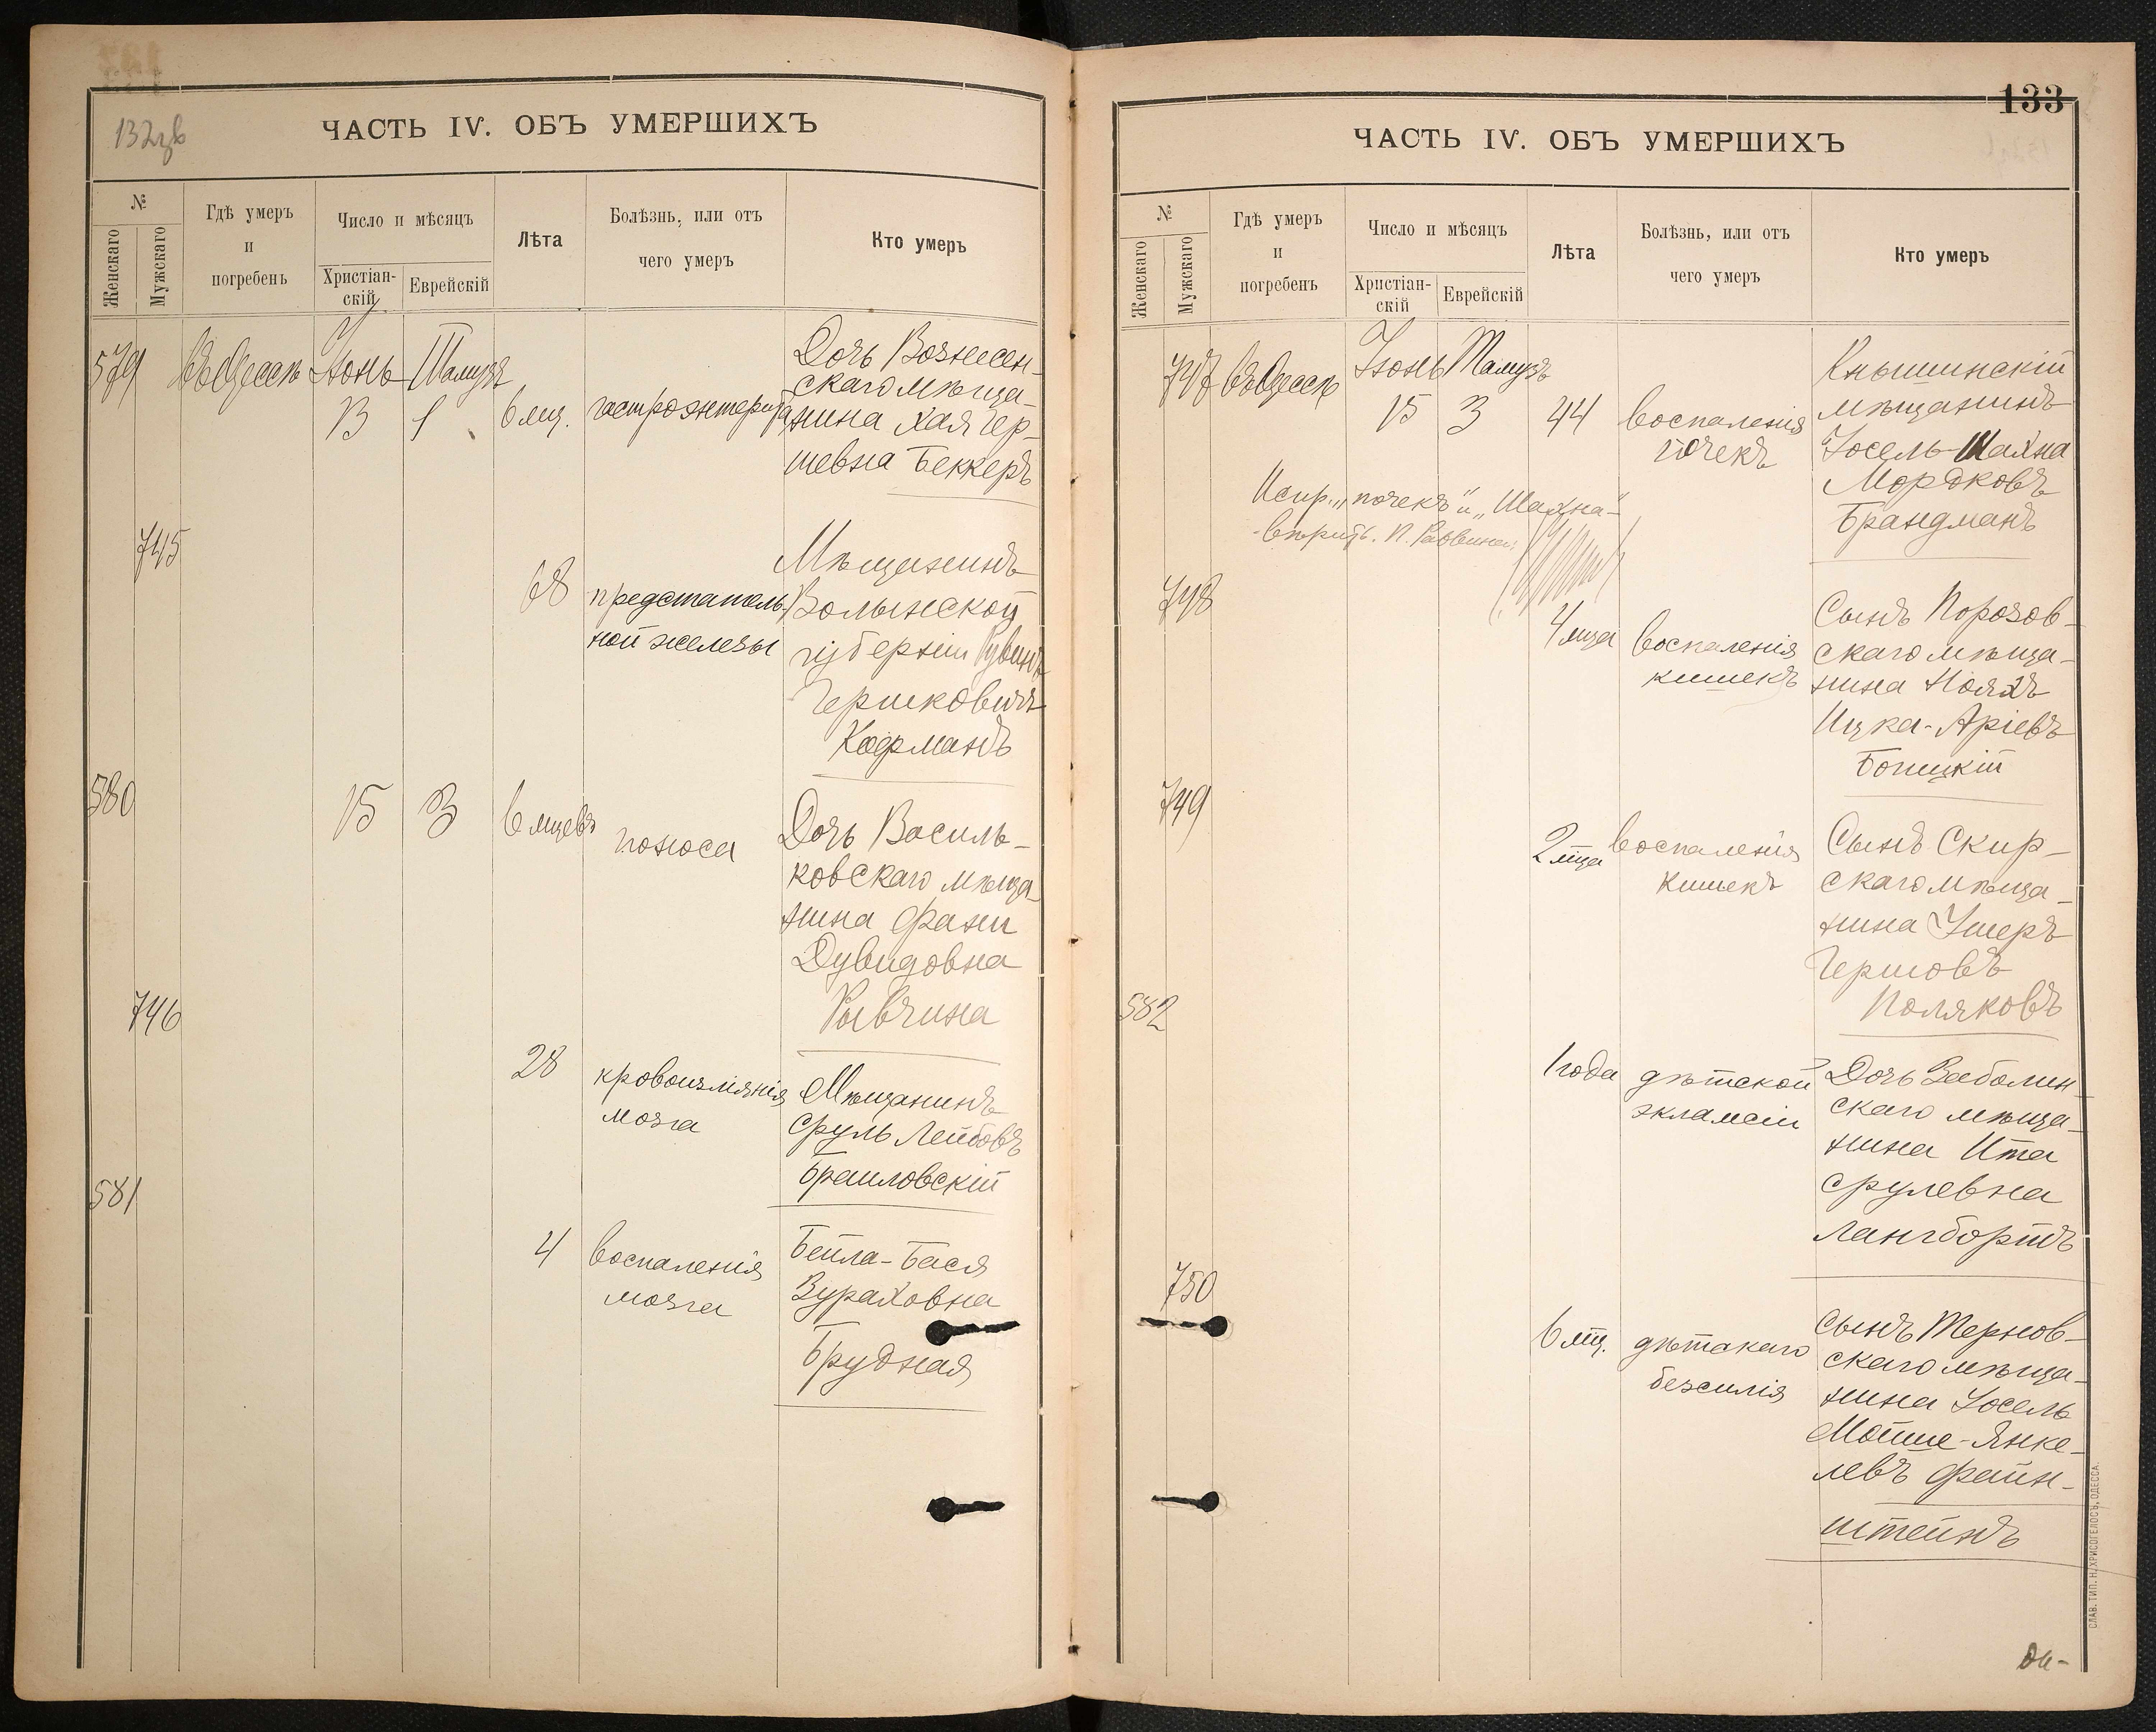 132
ЧАСТЬ IV. ОБЪ УМЕРШИХЪ
№
Женскаго
Мужскаго
Гдѣ умеръ
и
погребенъ
Число и мѣсяцъ
Христіан-
скій
Еврейскій
Лѣта
Болѣзнь, или отъ
чего умеръ
Кто умеръ
579
въ Одессѣ
Іюнь
Тамузъ
13
1
6 мц.
гастроэнтерита
Дочь Вознесен-
скаго мѣща-
нина Хая Гер-
шевна Беккеръ
745
68
предстатель-
ной железы
Мѣщанинъ
Волынской
губерніи Рувинъ
Гершковичъ
Кофманъ
580
15
3
6 мцевъ
поноса
Дочь Василь-
ковскаго мѣща-
нина Фани
Дувидовна
Рывчина
746
28
кровоизліянія
мозга
Мѣщанинъ
Сруль Лейбовъ
Браиловскій
581
4
воспаленія
мозга
Бейла-Бася
Зураховна
Брудная
133
ЧАСТЬ IV. ОБЪ УМЕРШИХЪ
№
Женскаго
Мужскаго
Гдѣ умеръ
и
погребенъ
Число и мѣсяцъ
Христіан-
скій
Еврейскій
Лѣта
Болѣзнь, или отъ
чего умеръ
Кто умеръ
747
въ Одессѣ
Іюнь
Тамузъ
15
3
44
воспаленія
почекъ
Кнышинскій
мѣщанинъ
Іосель-Шахна
Мордковъ
Брандманъ
Испр. „почекъ" и „Шахна"
-вѣрить. П. Раввина:
748
4 мца
воспаленія
кишекъ
Сынъ Порозов-
скаго мѣща-
нина Нояхъ
Ицка-Аріевъ
Бопицкій
749
2 мца
воспаленія
кишекъ
Сынъ Сквр-
скаго мѣща-
нина Ушеръ
Гершовъ
Поляковъ
582
1 года
дѣтской
экламсіи
Дочь Заболин-
скаго мѣща-
нина Ита
Срулевна
Лангбортъ
750
6 мц.
дѣтскаго
безсилія
Сынъ Тернов-
скаго мѣща-
нина Іосель
Мойше-Янке-
левъ Файн-
штейнъ
СЛАВ. ТИП. Н. ХРИСОГЕЛОСЪ, ОДЕССА.